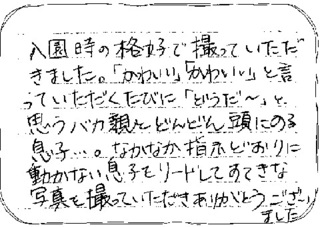 入園時の格好で撮っていただ
きました。「かわいい」「かわいい」と言
っていただくたびに「どうだ〜」と
思うバカ親とどんどん頭にのる
息子…。なかなか指示どおりに
動かない息子をリードしてすてきな
写真を撮っていただきありがとうござい
ました